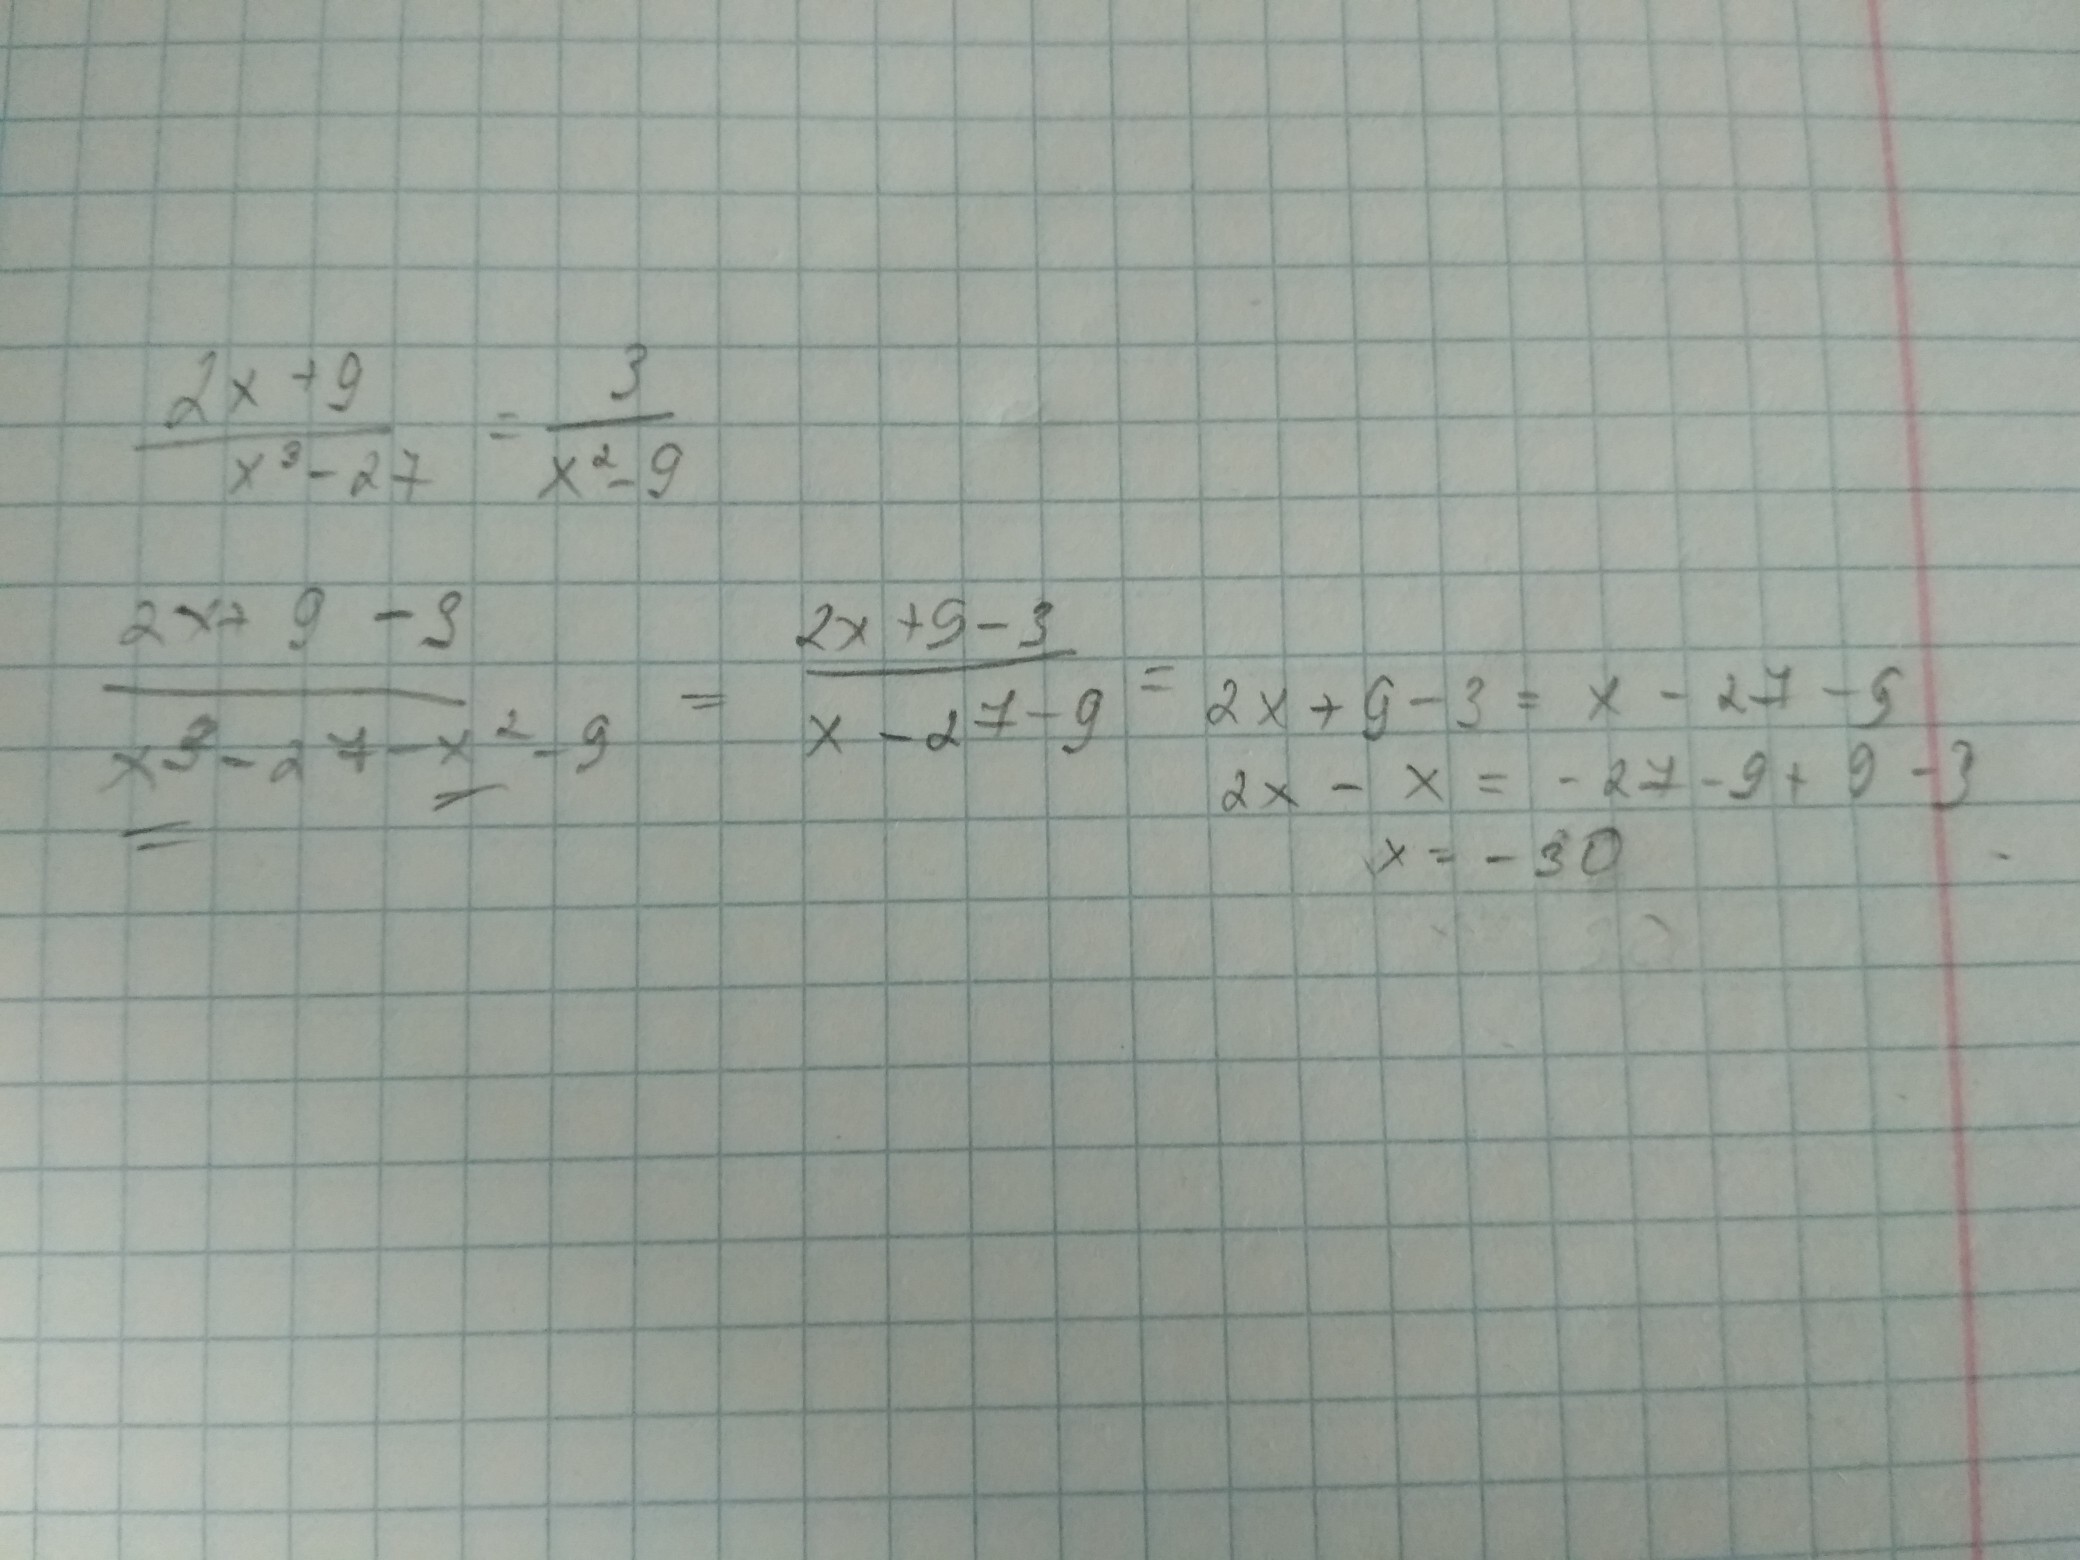 2x+9 / x³-27 = 3 / x²-9
2x+ 9 -3 / x³-27-x²-9 = 2x+9-3 / x-27-9 = 2x+9-3 = x-27-9
2x - x = -27-9+9-3
x = -30